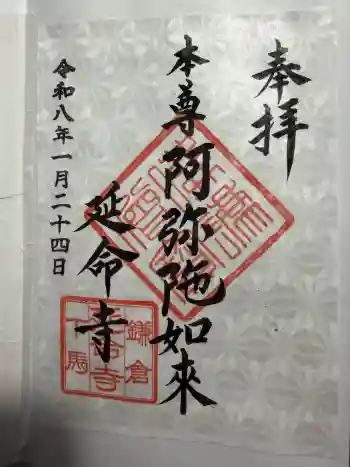 奉拝
本尊阿弥陁如來
延命寺
令和八年一月二十四日
鎌倉
延命寺
下馬